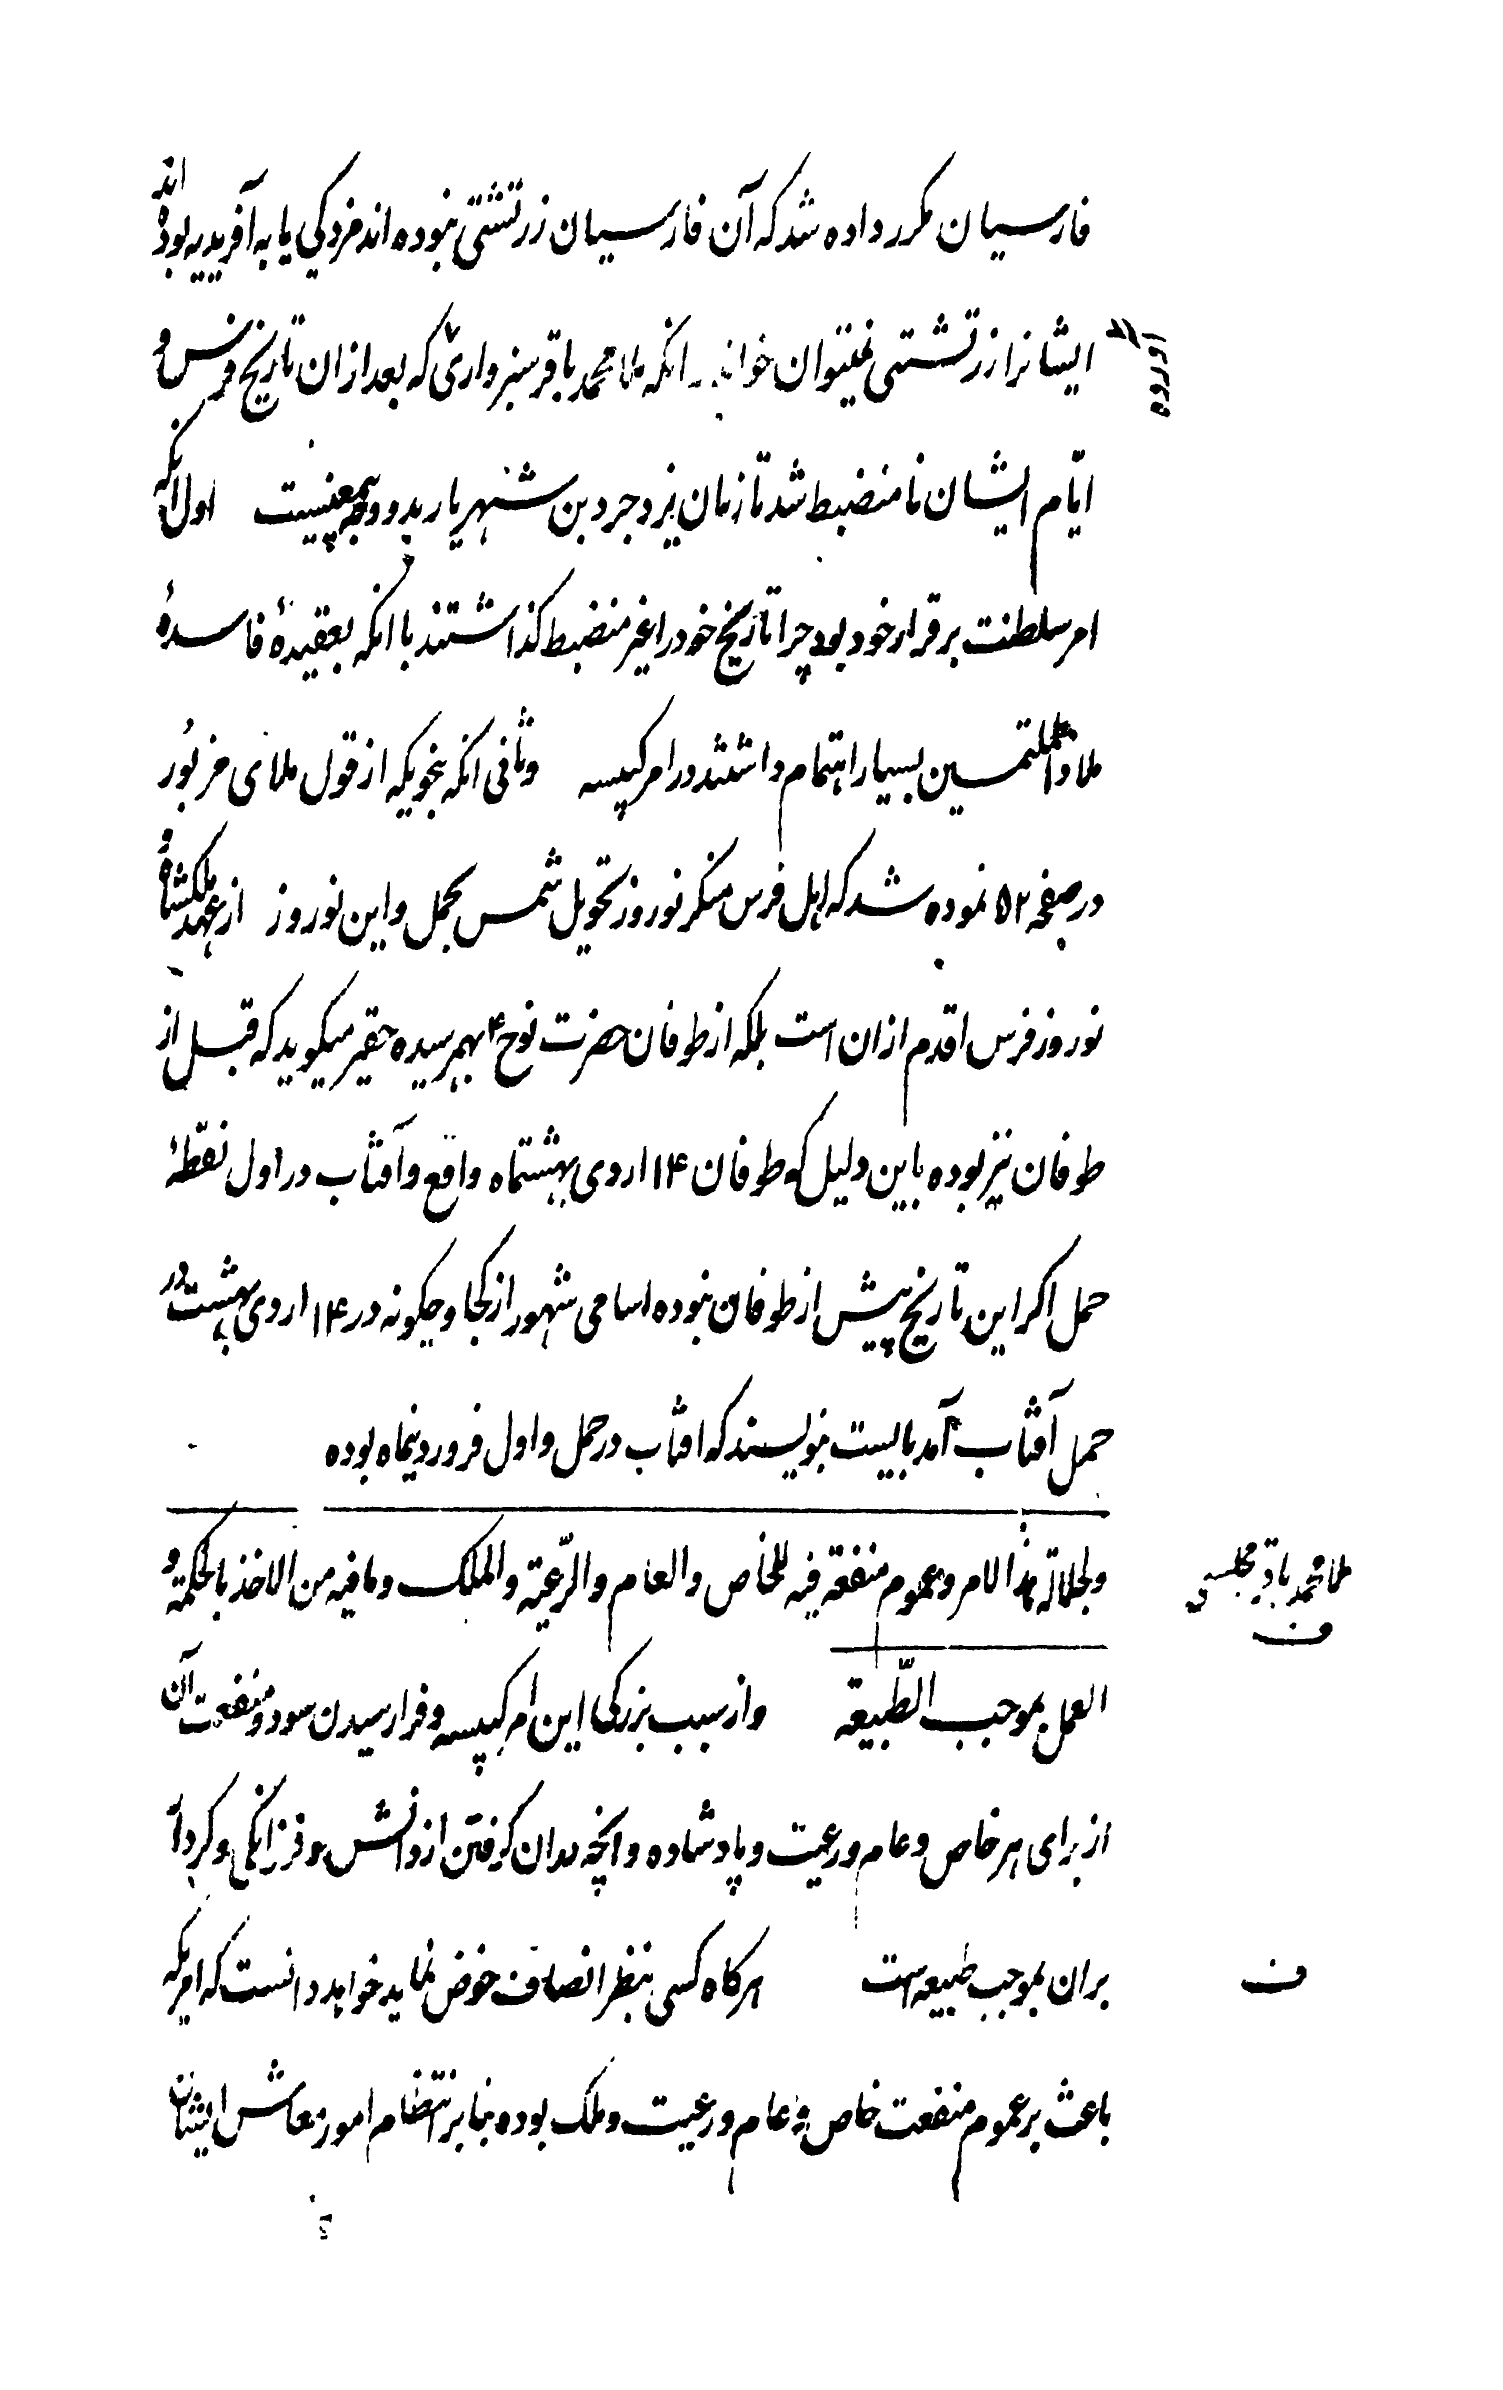 فارسیان مکرر داده شد که آن فارسیان زرتشتی نبوده اند مزدکی یا به آفریدیه بوده اند
ایشانرا زرتشتی نمیتوان خواند انکه ملا محمد باقر سبزواری که بعد ازان تاریخ فرس و
آورده
ایّام ایشان نامنضبط شد تا زمان یزدجرد بن شهریار بدو وجه بیمعنیست اول انکه
امر سلطنت برقرار خود بود چرا تاریخ خود را غیر منضبط کذاشتند با انکه بعقیدهٔ فاسدهٔ
ملا بسیار اهتمام داشتند در امر کبیسه و ثانی انکه بنحویکه از قول ملای مزبور
در صفحه ۵۲ نموده شد که اهل فرس منکر نوروز تحویل شمس بحمل و این نوروز از عهد ملکشاه و
نوروز فرس اقدم ازان است بلکه از طوفان حضرت نوح ۴ بهم رسیده حقیر میکوید که قبل از
طوفان نیز بوده باین دلیل که طوفان ۱۴ اردی بهشتماه واقع و آفتاب در اول نقطهٔ
حمل اکر این تاریخ پیش از طوفان نبوده اسامی شهور از کجا و چکونه در ۱۴ اردی بهشت در
حمل آفتاب آمد بایست بنویسند که افتاب در حمل و اول فروردینماه بوده
ملا محمد باقر مجلسی
ولجلالة هذا الامر و عموم منفعة فیه للخاص والعام والرّعیة والملک و مافیه من الاخذ بالحکمة و
ف
العمل بموجب الطّبیعة و از سبب بزرکی این امر کبیسه و فرا رسیدن سود و منفعت آن
از برای هر خاص و عام و رعیت و پادشاه و انچه بدان کرفتن از دانش و فرزانکی و کردار
بران بموجب طبیعه است هرکاه کسی بنظر انصاف خوض نماید خواهد دانست که امریکه
ف
باعث بر عموم منفعت خاص و عام و رعیت و ملک بوده بنابر انتظام امور معاش ایشان